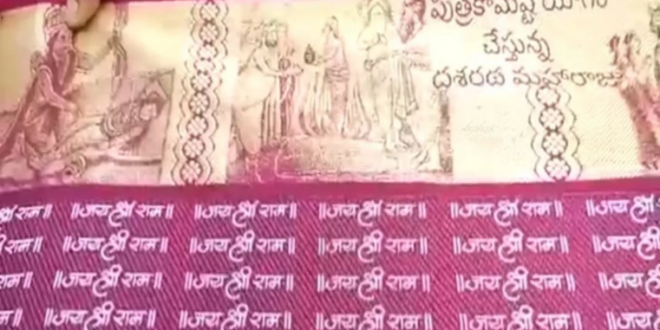 పుత్రకామేష్టి యాగం
చేస్తున్న
దశరథ మహారాజు
श्री राम॥ ॥जय श्री राम॥ ॥जय श्री राम॥ ॥जय श्री राम॥ ॥जय श्री राम॥ ॥जय श्री
राम॥ ॥जय श्री राम॥ ॥जय श्री राम॥ ॥जय श्री राम॥ ॥जय श्री राम॥ ॥जय श्री
राम॥ ॥जय श्री राम॥ ॥जय श्री राम॥ ॥जय श्री राम॥ ॥जय श्री राम॥ ॥जय श्री
राम॥ ॥जय श्री राम॥ ॥जय श्री राम॥ ॥जय श्री राम॥ ॥जय श्री राम॥ ॥जय श्री